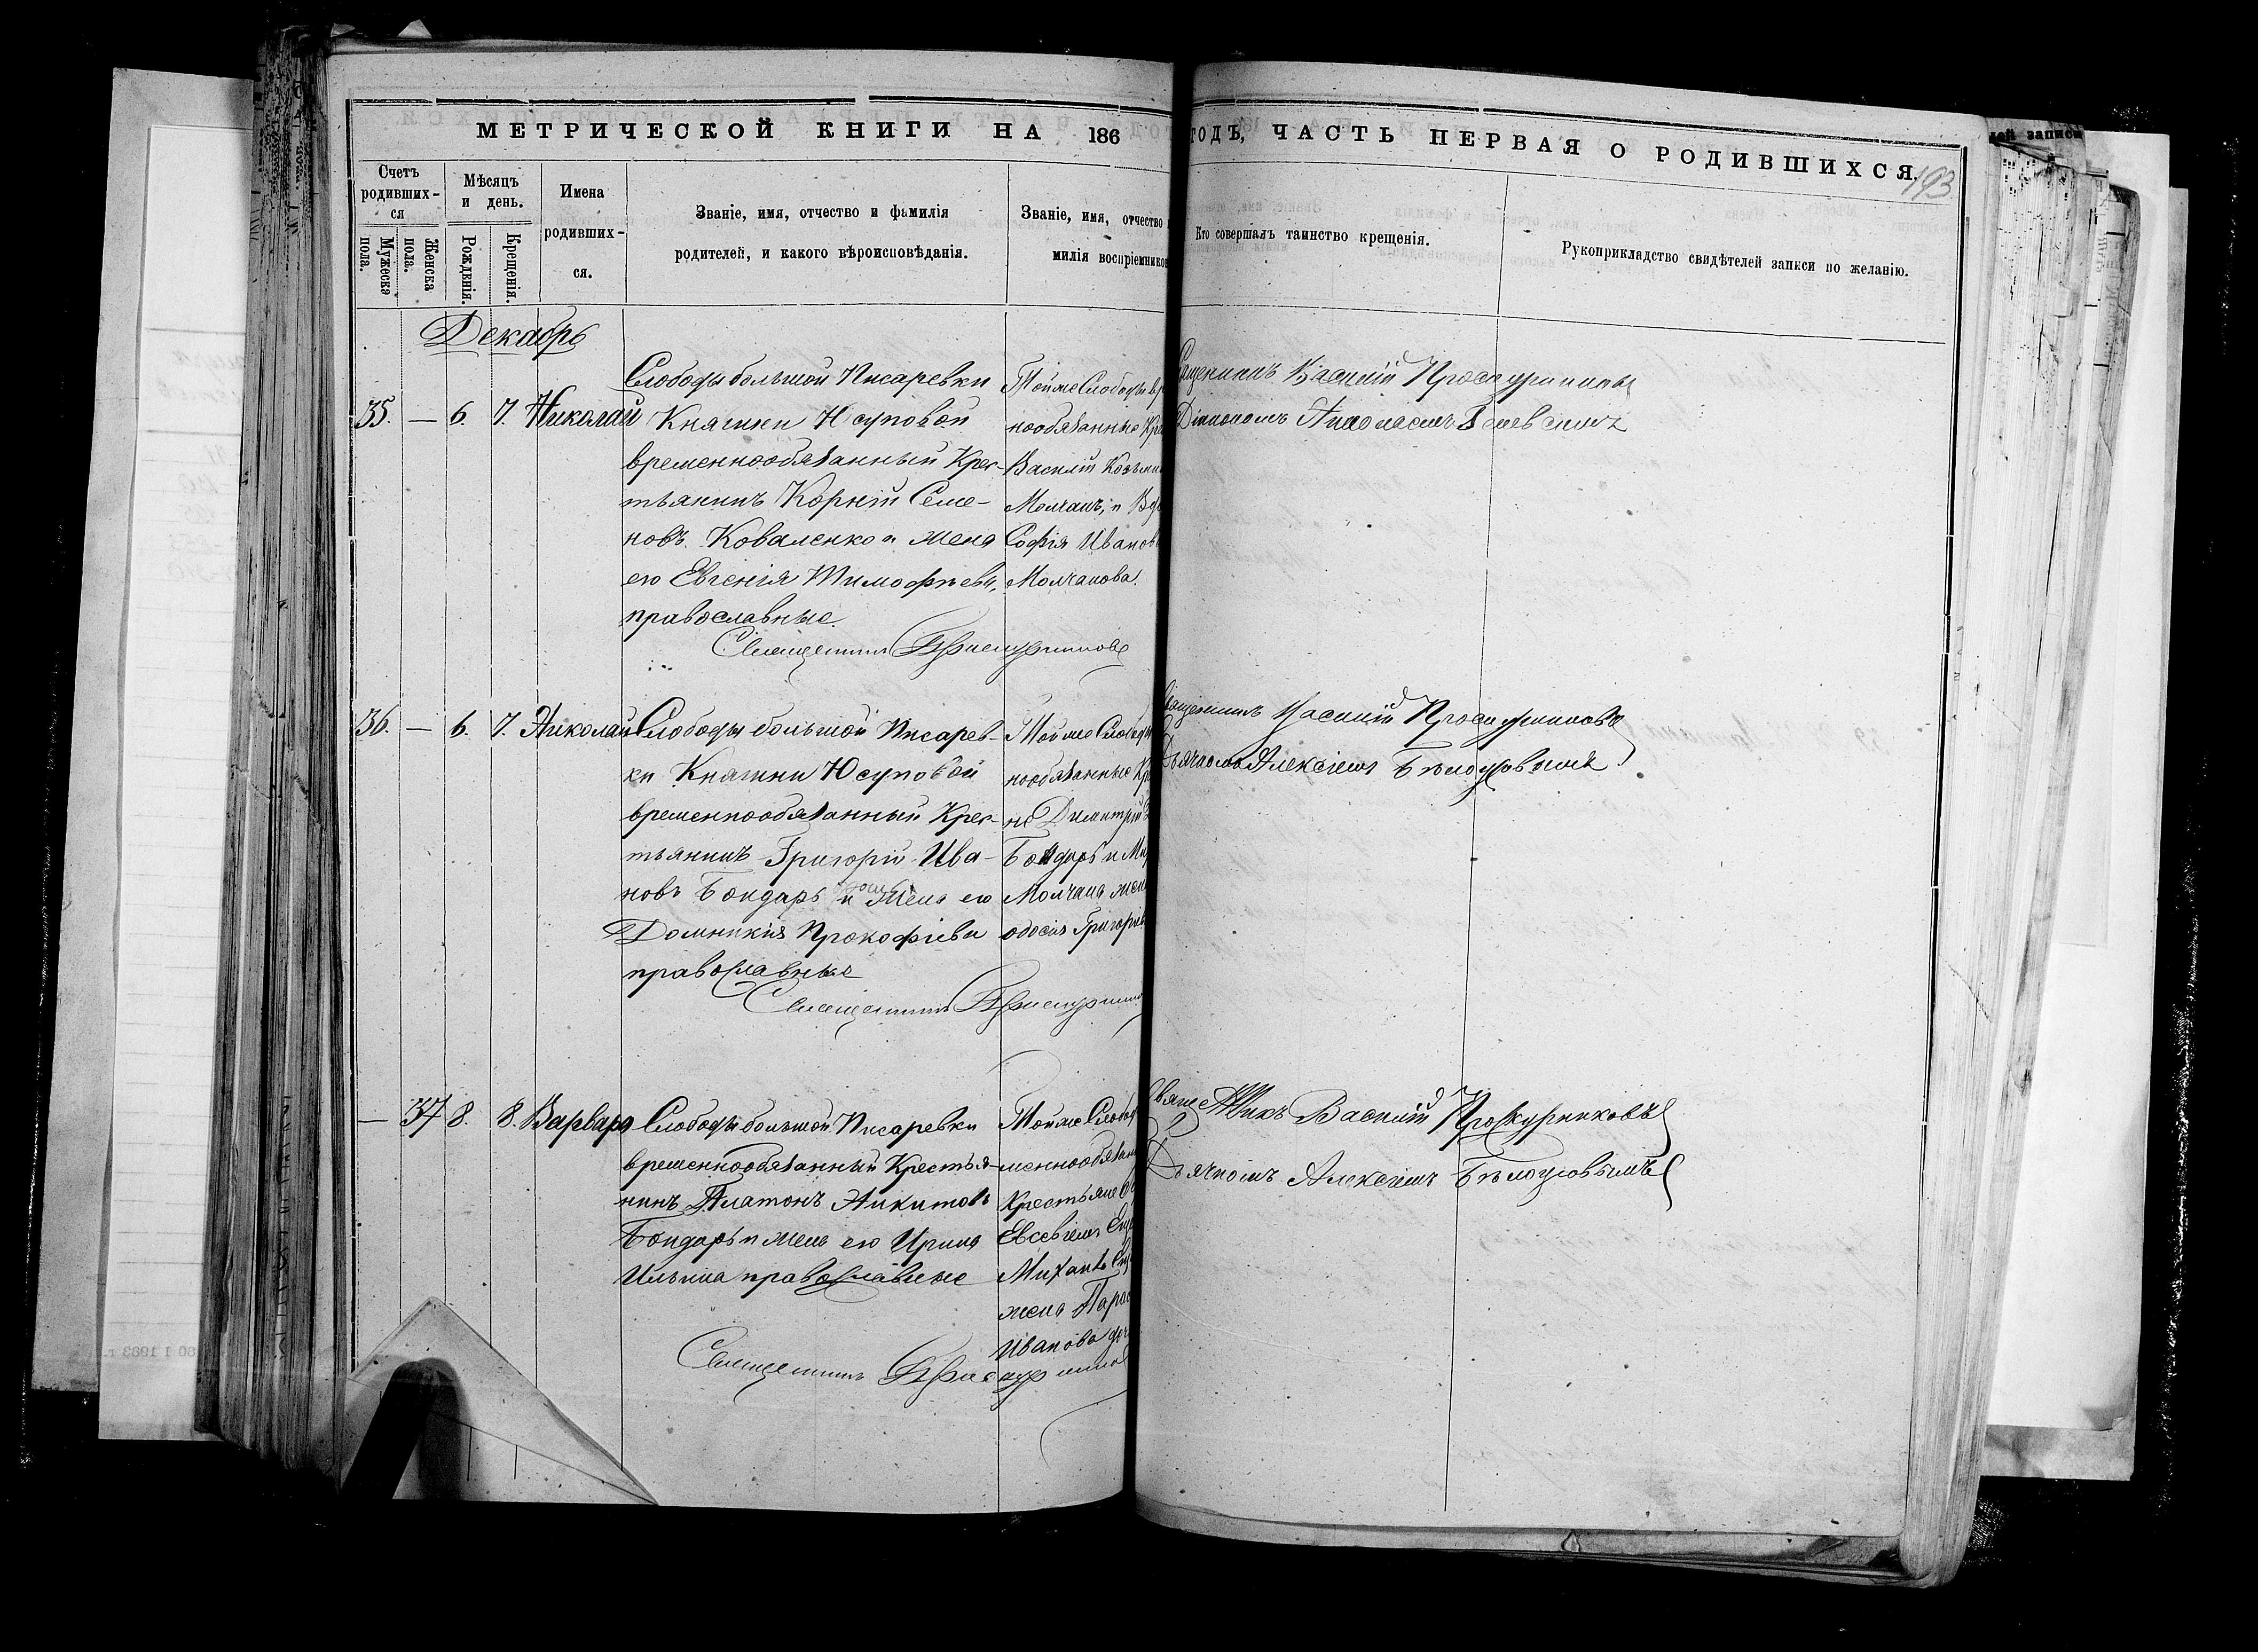 МЕТРИЧЕСКОЙ КНИГИ НА 186
ГОДЪ, ЧАСТЬ ПЕРВАЯ О РОДИВШИХСЯ.
193
дей записи
Счетъ родивших-ся
Мужеска пола.
Женска пола.
Мѣсяцъ и день.
Рожденія.
Крещенія.
Имена родивших-ся.
Званіе, имя, отчество и фамилія
родителей, и какого вѣроисповѣданія.
Званіе, имя, отчество
милія воспріемников
Кто совершалъ таинство крещенія.
Рукоприкладство свидѣтелей записи по желанію.
Декабрь
35. — 6. 7. Николай
Слободы большой Писаревки
Княгини Юсуповой
временнообязанный Крес-
тьянинъ Корній Семе-
новъ Коваленко и жена
его Евгенія Тимофѣева,
православные.
Священникъ Проскурниковъ
Тойже Слободы вр
нообязанные Кре
Василій Козьмин
Молчанъ, и Вдо
Софія Иванов
Молчанова.
Священникъ Василій Проскурниковъ
Діакономъ
36. — 6. 7. Николай
Слободы большой Писарев-
ки Княгини Юсуповой
временнообязанный Крес-
тьянинъ Григорій Ива-
новъ Бондарь и жена его
Домникія Прокофіева
православные
Священникъ Проскурник
Тойже Слободы
нообязанные Кр
не Димитрій
Бондарь и Ми
Молчана жен
одосія Григорьев
Священникъ Василій Проскурниковъ
Дьячкомъ Алексіемъ Бѣлоусовымъ
— 37 8. 8. Варвара
Слободы большой Писаревки
временнообязанный Крестья-
нинъ Платонъ Никитовъ
Бондарь и жена его Ирина
Ильина православные
Священникъ Проскурников
Тойже Слобод
меннообязан
Крестьяне
Евсевіевъ
жена Парас
Иванова доч
Священникъ Василій Проскурниковъ
Дьячкомъ Алексіемъ Бѣлоусовымъ